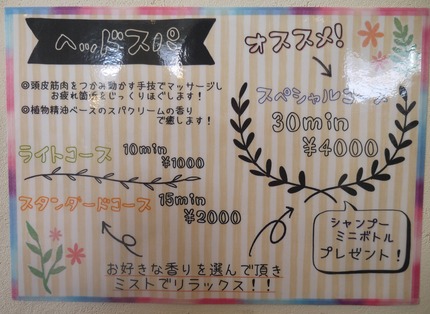 ヘッドスパ
◎頭皮筋肉をつかみ動かす手技でマッサージし
お疲れ箇所をじっくりほぐします！
◎植物精油ベースのスパクリームの香り
で癒します！
ライトコース 10min
¥1000
スタンダードコース 15min
¥2000
オススメ！
スペシャルコース
30min
¥4000
シャンプー
ミニボトル
プレゼント！
お好きな香りを選んで頂き
ミストでリラックス！！